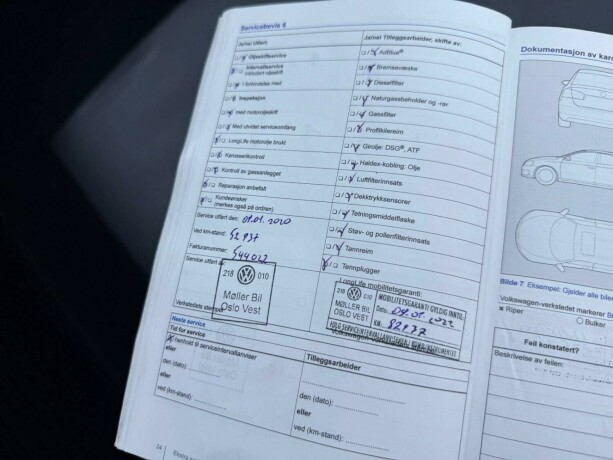 Servicebevis 6
Ja/nei Utført:
Oljeskiftservice
Intervallservice
inkludert oljeskift
I forbindelse med
Inspeksjon
med motoroljeskift
Med utvidet serviceomfang
LongLife motorolje brukt
Karosserikontroll
Kontroll av gassanlegget
Reparasjon anbefalt
Kundeønsker
(merkes også på ordren)
Service utført den: 09.01.2020
Ved km-stand:
Fakturanummer:
Service utført av
218 010
Møller Bil
Oslo Vest
Verkstedets stempel
Ja/nei Tilleggsarbeider, skifte av:
AdBlue®
Bremsevæske
Dieselfilter
Naturgassbeholder og -rør
Gassfilter
Profilkilereim
Girolje: DSG®, ATF
Haldex-kobling: Olje
Luftfilterinnsats
Dekktrykksensorer
Tetningsmiddelflaske
Støv- og pollenfilterinnsats
Tannreim
Tennplugger
LongLife mobilitetsgaranti:
218 010
MØLLER BIL
OSLO VEST
MOBILITETSGARANTI GYLDIG INNTIL
Dato: 09.01.2022
KM:
Neste service
Tid for service
I henhold til serviceintervallanviser
eller
den (dato):
eller
ved (km-stand):
Tilleggsarbeider
den (dato):
eller
ved (km-stand):
24
Dokumentasjon av
Bilde 7 Eksempel: Gjelder alle
Volkswagen-verkstedet markerer
Riper
Bulker
Feil konstatert?
Beskrivelse av feilen: